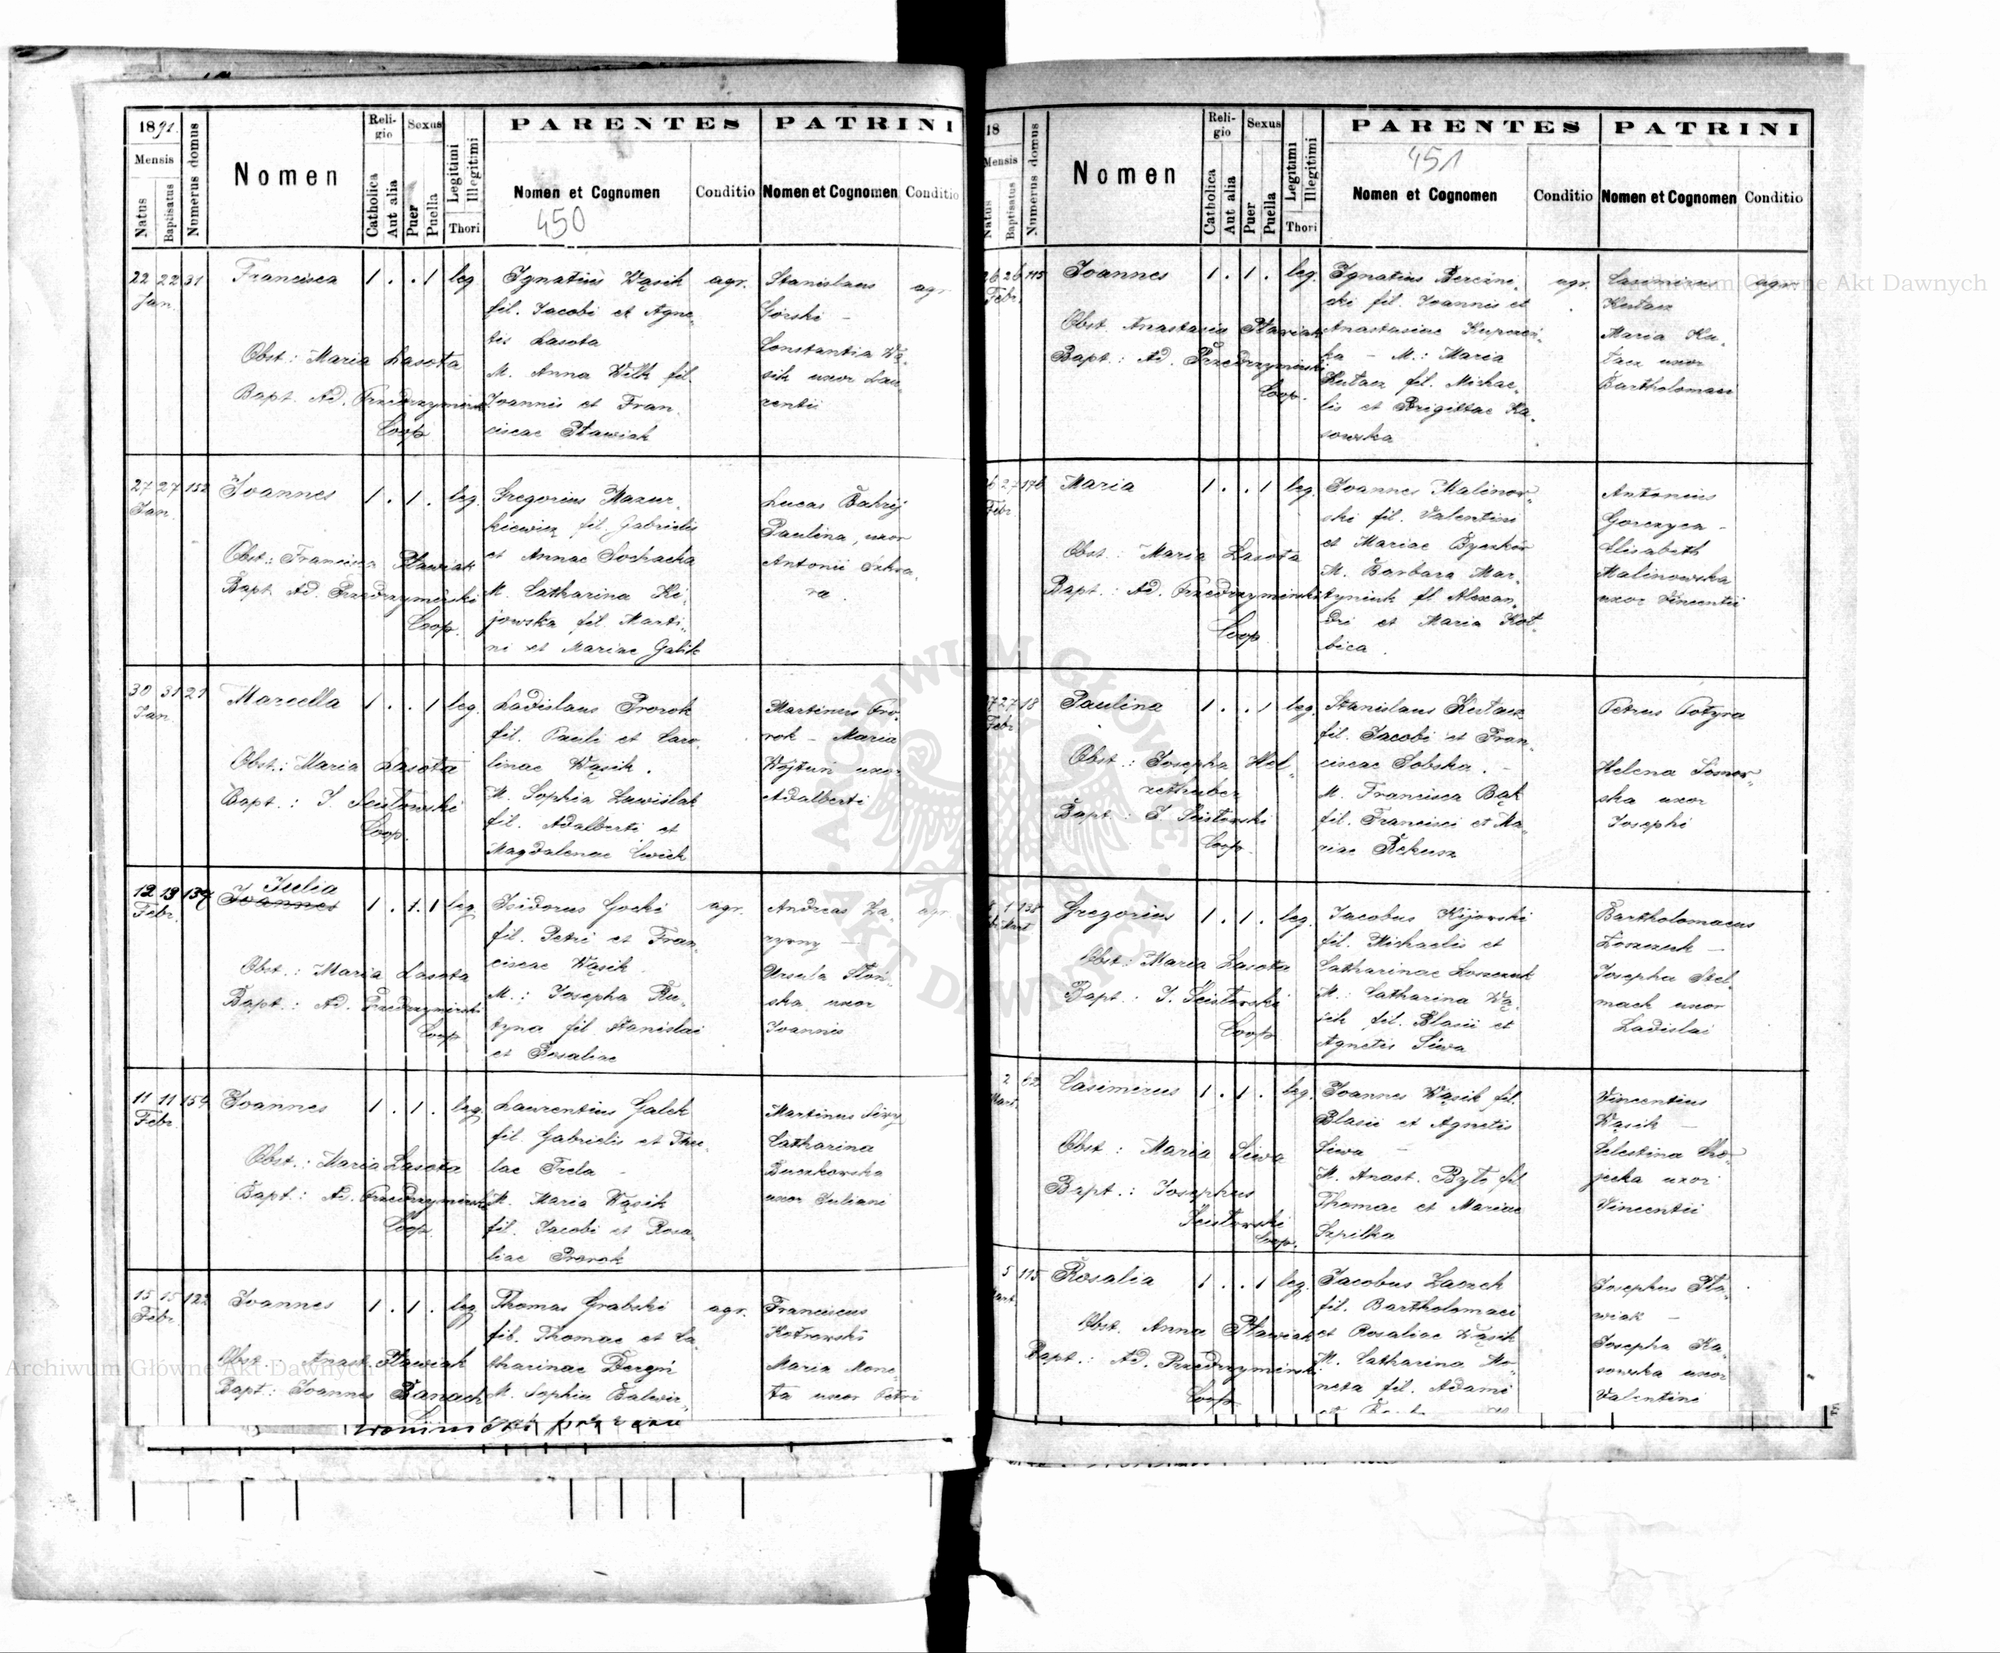 1891.
Mensis
Natus
Baptisatus
Numerus domus
Nomen
Religio
Catholica
Aut alia
Sexus
Puer
Puella
Legitimi
Illegitimi
Thori
PARENTES
Nomen et Cognomen
Conditio
450
PATRINI
Nomen et Cognomen
Conditio
22 22 31
Jan.
Francisca 1 . . 1 leg.
Obst.: Maria Lasota
Bapt. Ad. Przedrzymirski
Coop.
Ignatius Wąsik agr.
fil. Jacobi et Agne-
tis Lasota
M. Anna Wilk fil.
Joannis et Fran-
ciscae Pławiak
Stanislaus agr.
Górski –
Constantia Wą-
sik uxor Lau-
rentii
27 27 152
Jan.
Joannes 1 . 1 . leg.
Obst.: Francisca Pławiak
Bapt. Ad. Przedrzymirski
Coop.
Gregorius Mazur-
kiewicz fil. Gabrielis
et Annae Sochacka
M. Catharina Ki-
jowska fil. Marti-
ni et Mariae Galik
Lucas
Paulina, uxor
Antonii
30 31 21
Jan.
Marcella 1 . . 1 leg.
Obst.: Maria Lasota
Bapt.: J. Scisłowski
Coop.
Ladislaus Prorok
fil. Pauli et Caro-
linae Wąsik.
M. Sophia Lawiślak
fil. Adalberti et
Magdalenae Ćwiek
Martinus Pro-
rok – Maria
Wójtuń uxor
Adalberti
12 13 139
Febr.
Julia
Joannes 1 . 1. 1 leg.
Obst.: Maria Lasota
Bapt.: Ad. Przedrzymirski
Coop.
Isidorus Gocki agr.
fil. Petri et Fran-
ciscae Wąsik
M.: Josepha Ru-
tyna fil Stanislai
et Rosaliae
Andreas Za- agr.
rzyny –
Ursula Słoń-
ska uxor
Joannis
11 11 159
Febr.
Joannes 1 . 1 . leg.
Obst.: Maria Lasota
Bapt.: Ad. Przedrzymirski
Coop.
Laurentius Galek
fil. Gabrielis et Thec-
lae Trela –
M. Maria Wąsik
fil. Jacobi et Rosa-
liae Prorok
Martinus
Catharina
Buczkowska
uxor Juliani
15 15 122
Febr.
Joannes 1 . 1 . leg.
Obst. Anast. Pławiak
Bapt.: Joannes Banach
Thomas Grabski agr.
fil. Thomae et Ca-
tharinae Dergń
M. Sophia Balwir-
Franciscus
Kotrowski
Maria Mone-
ta uxor Petri
18
Mensis
Natus
Baptisatus
Numerus domus
Nomen
Religio
Catholica
Aut alia
Sexus
Puer
Puella
Legitimi
Illegitimi
Thori
PARENTES
451
Nomen et Cognomen
Conditio
PATRINI
Nomen et Cognomen
Conditio
26 26 115
Febr.
Joannes 1 . 1 . leg.
Obst. Anastasia Pławiak
Bapt.: Ad. Przedrzymirski
Coop.
Ignatius Berezni- agr.
cki fil. Joannis et
Anastasiae Kuprzeń-
ka – M.: Maria
Kutacz fil. Michae-
lis et Brigittae Ka-
sowska
Casimirus agr.
Kutacz
Maria Ku-
tacz uxor
Bartholomaei
26 27 176
Febr.
Maria 1 . . 1 leg.
Obst.: Maria Lasota
Bapt.: Ad. Przedrzymirski
Coop.
Joannes Malinow-
ski fil. Valentini
et Mariae Byczków
M. Barbara Mar-
tyniuk fil Alexan-
dri et Maria Kot-
bica.
Antonius
Gorczyca –
Elisabeth
Malinowska
uxor Vincentii
27 27 18
Febr.
Paulina 1 . . 1 leg.
Obst.: Josepha Hel-
zethuber
Bapt.: J Scisłowski
Coop
Stanislaus Kutacz
fil. Jacobi et Fran-
ciscae Sobska. –
M. Francisca Bąk
fil. Francisci et Ma-
riae Rekusz
Petrus Potyra
Helena Sosnow-
ska uxor
Josephi
1 138
Mart
Gregorius 1 . 1 . leg.
Obst.: Maria Lasota
Bapt.: J. Scisłowski
Coop
Jacobus Kijowski
fil. Michaelis et
Catharinae Łoszczuk
M.: Catharina Wą-
sik fil. Blasii et
Agnetis Siwa
Bartholomaeus
Łoszczuk –
Josepha Stel-
mach uxor
Ladislai
2 62
Mart.
Casimirus 1 . 1 . leg.
Obst.: Maria Siwa
Bapt.: Josephus
Scisłowski
Coop.
Joannes Wąsik fil.
Blasii et Agnetis
Siwa –
M. Anast. Byto fil
Thomae et Mariae
Szpilka
Vincentius
Wąsik –
Celestina Cho-
jecka uxor
Vincentii
5 115
Mart.
Rosalia 1 . . 1 leg.
Obst. Anna Pławiak
Bapt.: Ad. Przedrzymirski
Coop
Jacobus Zaczek
fil. Bartholomaei
et Rosaliae Wąsik
M. Catharina Mo-
neta fil. Adami
Josephus Pła-
wiak –
Josepha Ka-
sowska uxor
Valentini
ARCHIWUM GŁÓWNE AKT DAWNYCH
Archiwum Główne Akt Dawnych
Archiwum Główne Akt Dawnych